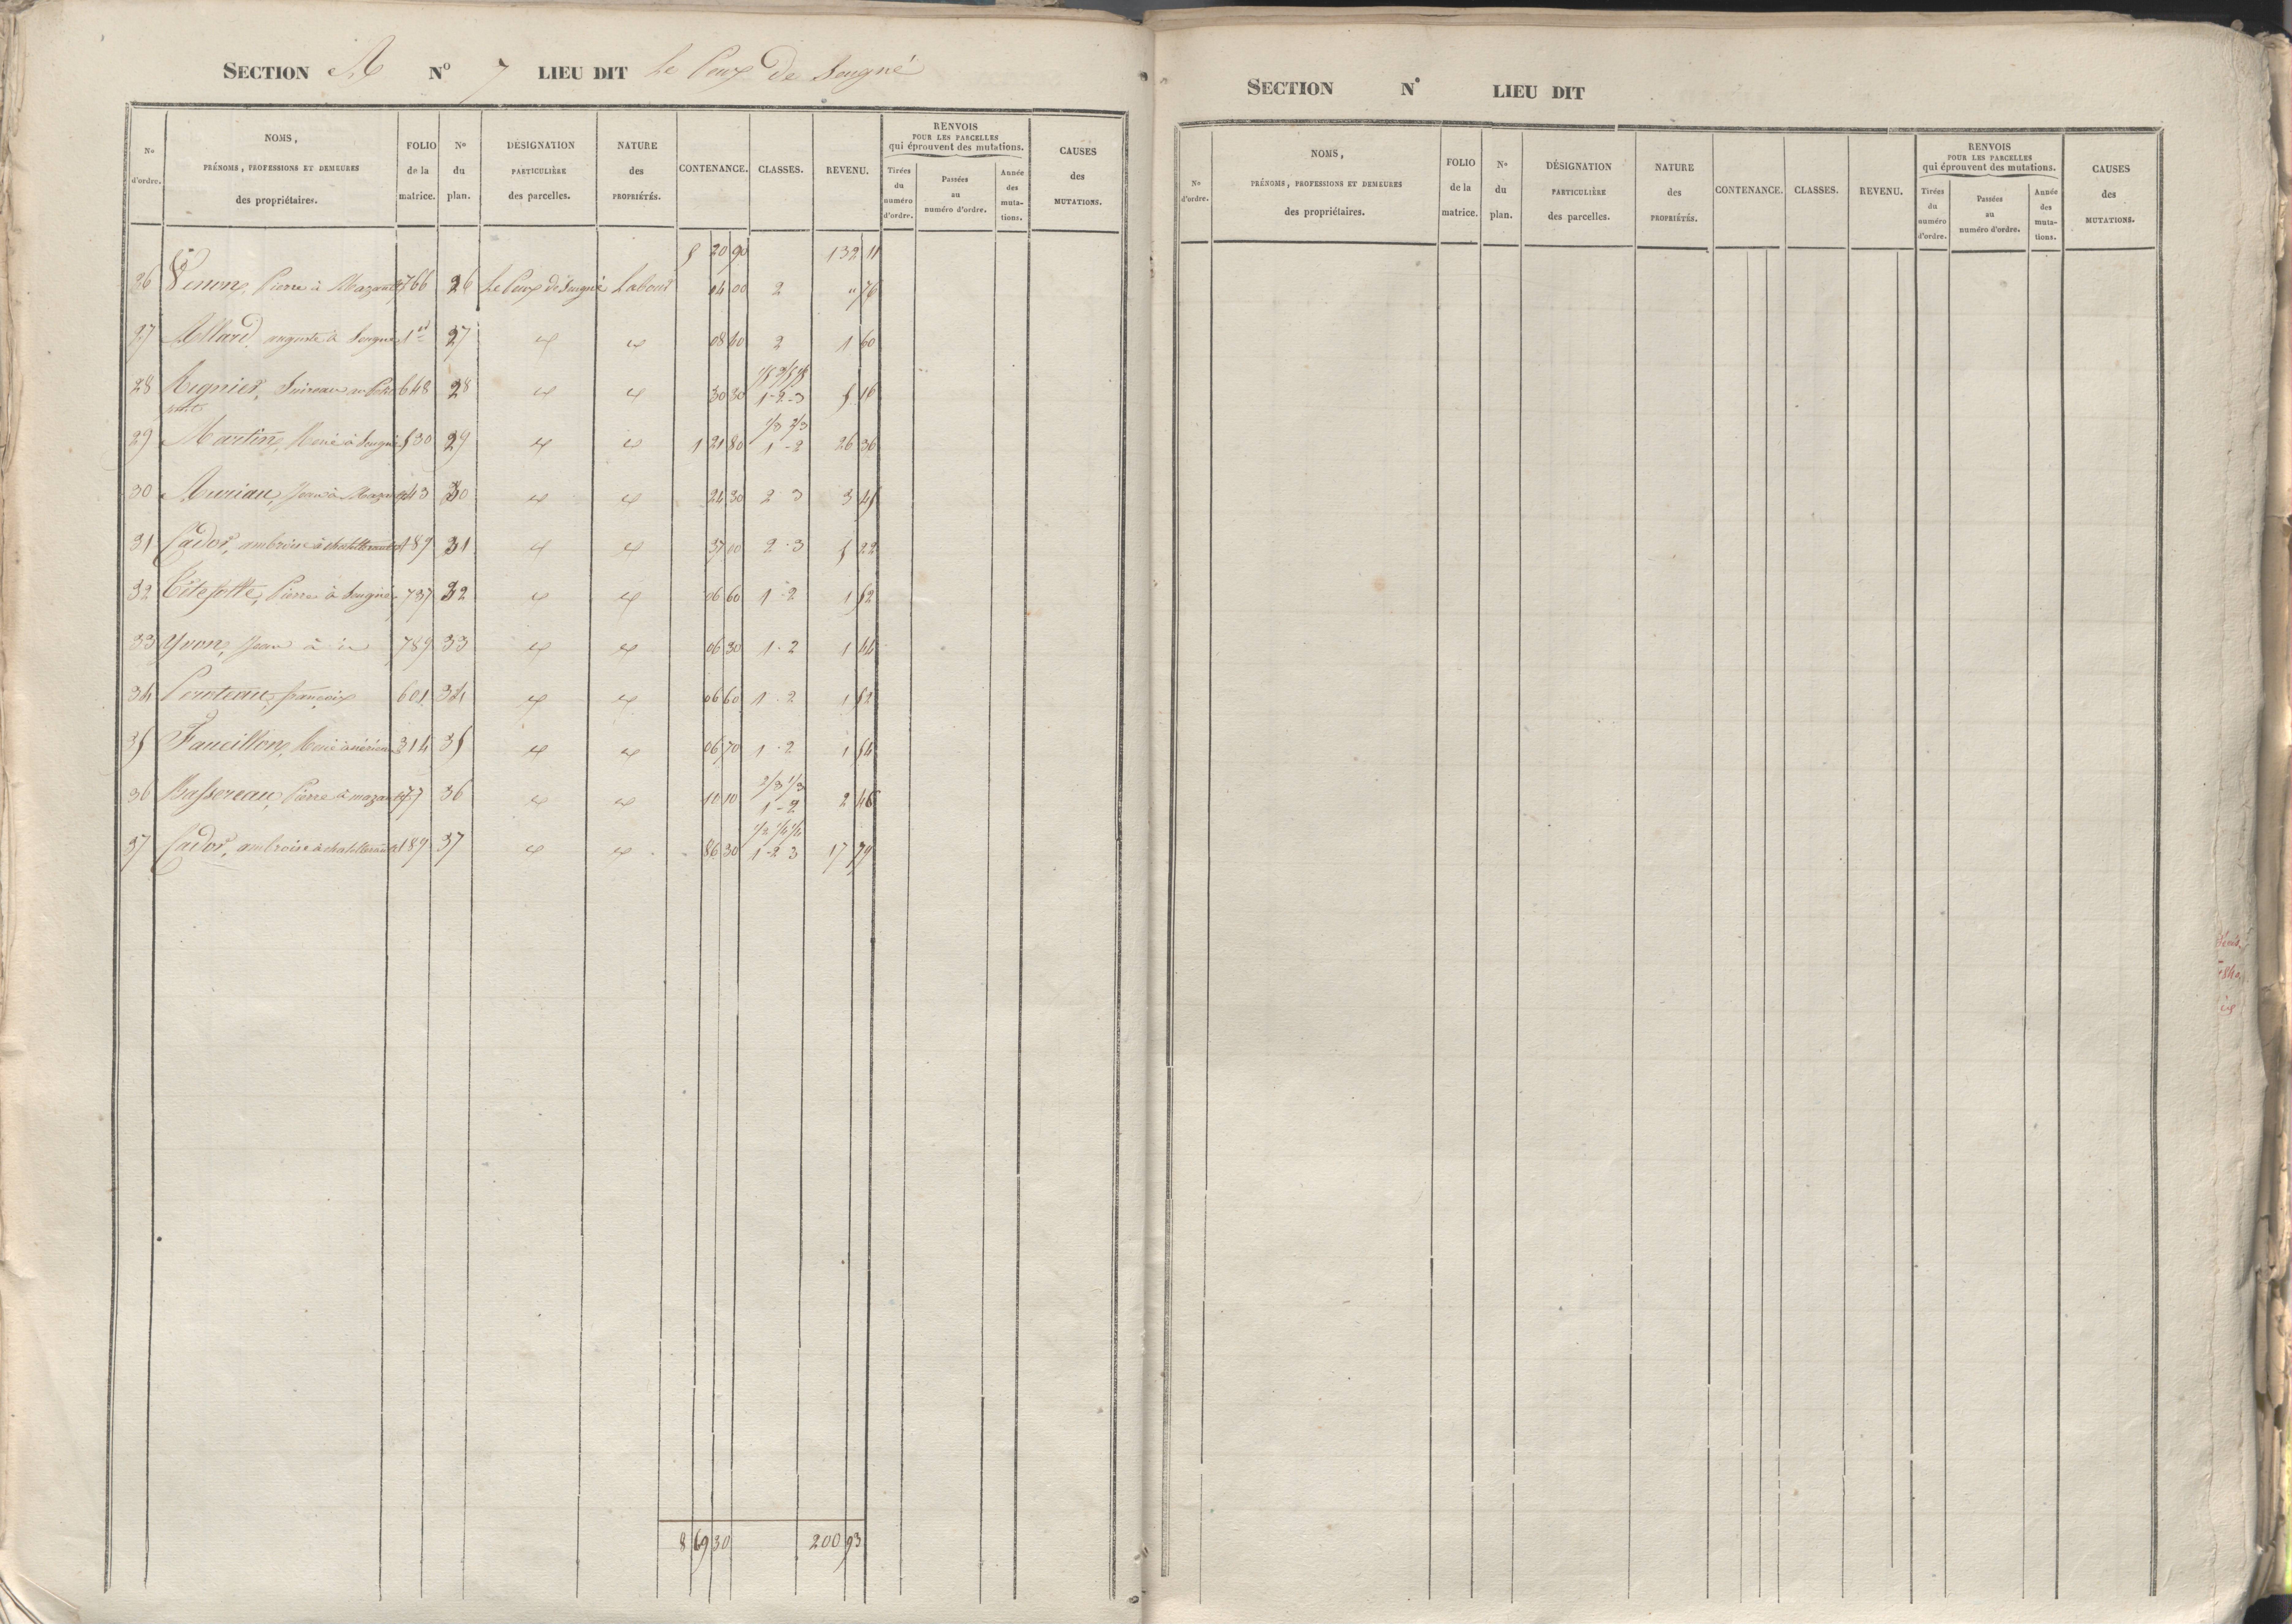 SECTION A N° 7 LIEU DIT Le Poux de Sougné
No d'ordre. NOMS, PRÉNOMS, PROFESSIONS ET DEMEURES des propriétaires. FOLIO de la matrice. No du plan. DÉSIGNATION PARTICULIÈRE des parcelles. NATURE des PROPRIÉTÉS. CONTENANCE. CLASSES. REVENU. RENVOIS POUR LES PARCELLES qui éprouvent des mutations. Tirées du numéro d'ordre. Passées au numéro d'ordre. Année des mutations. CAUSES des MUTATIONS.
5 20 90 132 11
26 Pierre à 766 26 Labour 04 00 2 " 76
27 Allard, auguste à Sougné 1er 27 08 40 2 1 60
28 Regnier, 648 28 30 30 1-2-3 5 16
29 Martin, René à Sougné 530 29 1 21 80 1/3 2/3 1-2 26 36
30 Jean à 30 24 30 2 3 3 45
31 Cador, ambroise à chatellerault 189 31 37 00 2-3 5 22
32 Pierre à Sougné 737 32 06 60 1-2 1 52
33 Yvon, Jean à id 789 33 06 30 1-2 1 44
34 françois 601 34 06 60 1-2 1 52
35 Faucillon, René 314 35 06 70 1-2 1 54
36 Bassereau, Pierre à 77 36 10 10 2/3 1/3 1-2 2 46
37 Cador, ambroise à chatellerault 189 37 86 30 1/2 1/4 1/4 1-2 3 17 79
8 69 30 200 93
SECTION N° LIEU DIT
No d'ordre. NOMS, PRÉNOMS, PROFESSIONS ET DEMEURES des propriétaires. FOLIO de la matrice. No du plan. DÉSIGNATION PARTICULIÈRE des parcelles. NATURE des PROPRIÉTÉS. CONTENANCE. CLASSES. REVENU. RENVOIS POUR LES PARCELLES qui éprouvent des mutations. Tirées du numéro d'ordre. Passées au numéro d'ordre. Année des mutations. CAUSES des MUTATIONS.